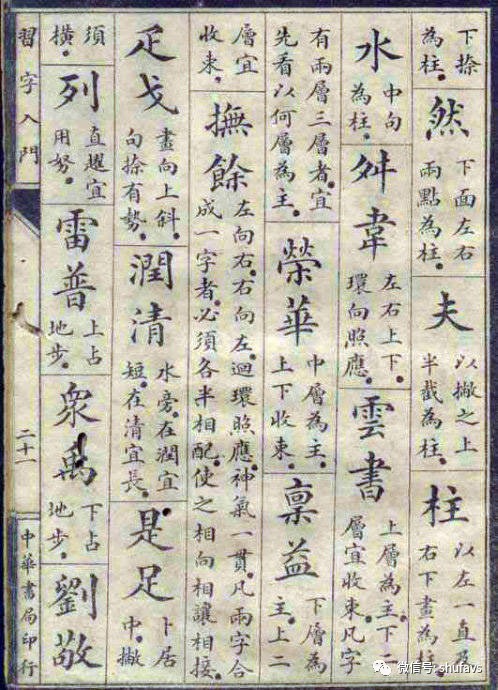 下捺為柱。然 下面左右兩點為柱。夫 以撇之上半截為柱。柱 以左一直及右下畫為柱。
水 中句為柱。舛韋 左右上下。環向照應。雲書 上層為主。下二層宜收束。凡字
有兩層三層者。宜先看以何層為主。榮華 中層為主。上下收束。稟益 下層為主。上二
層宜收束。撫餘 左向右。右向左。迴環照應。神氣一貫。凡兩字合成一字者。必須各半相配。使之相向相讓相接。
疋戈 畫向上斜。句捺有勢。潤清 水旁。在潤宜短。在清宜長。是足 卜居中。撇
須橫。列 直趯宜用努。雷普 上占地步。眾禹 下占地步。劉敬
習字入門 二十一 中華書局印行
微信号: shufavs